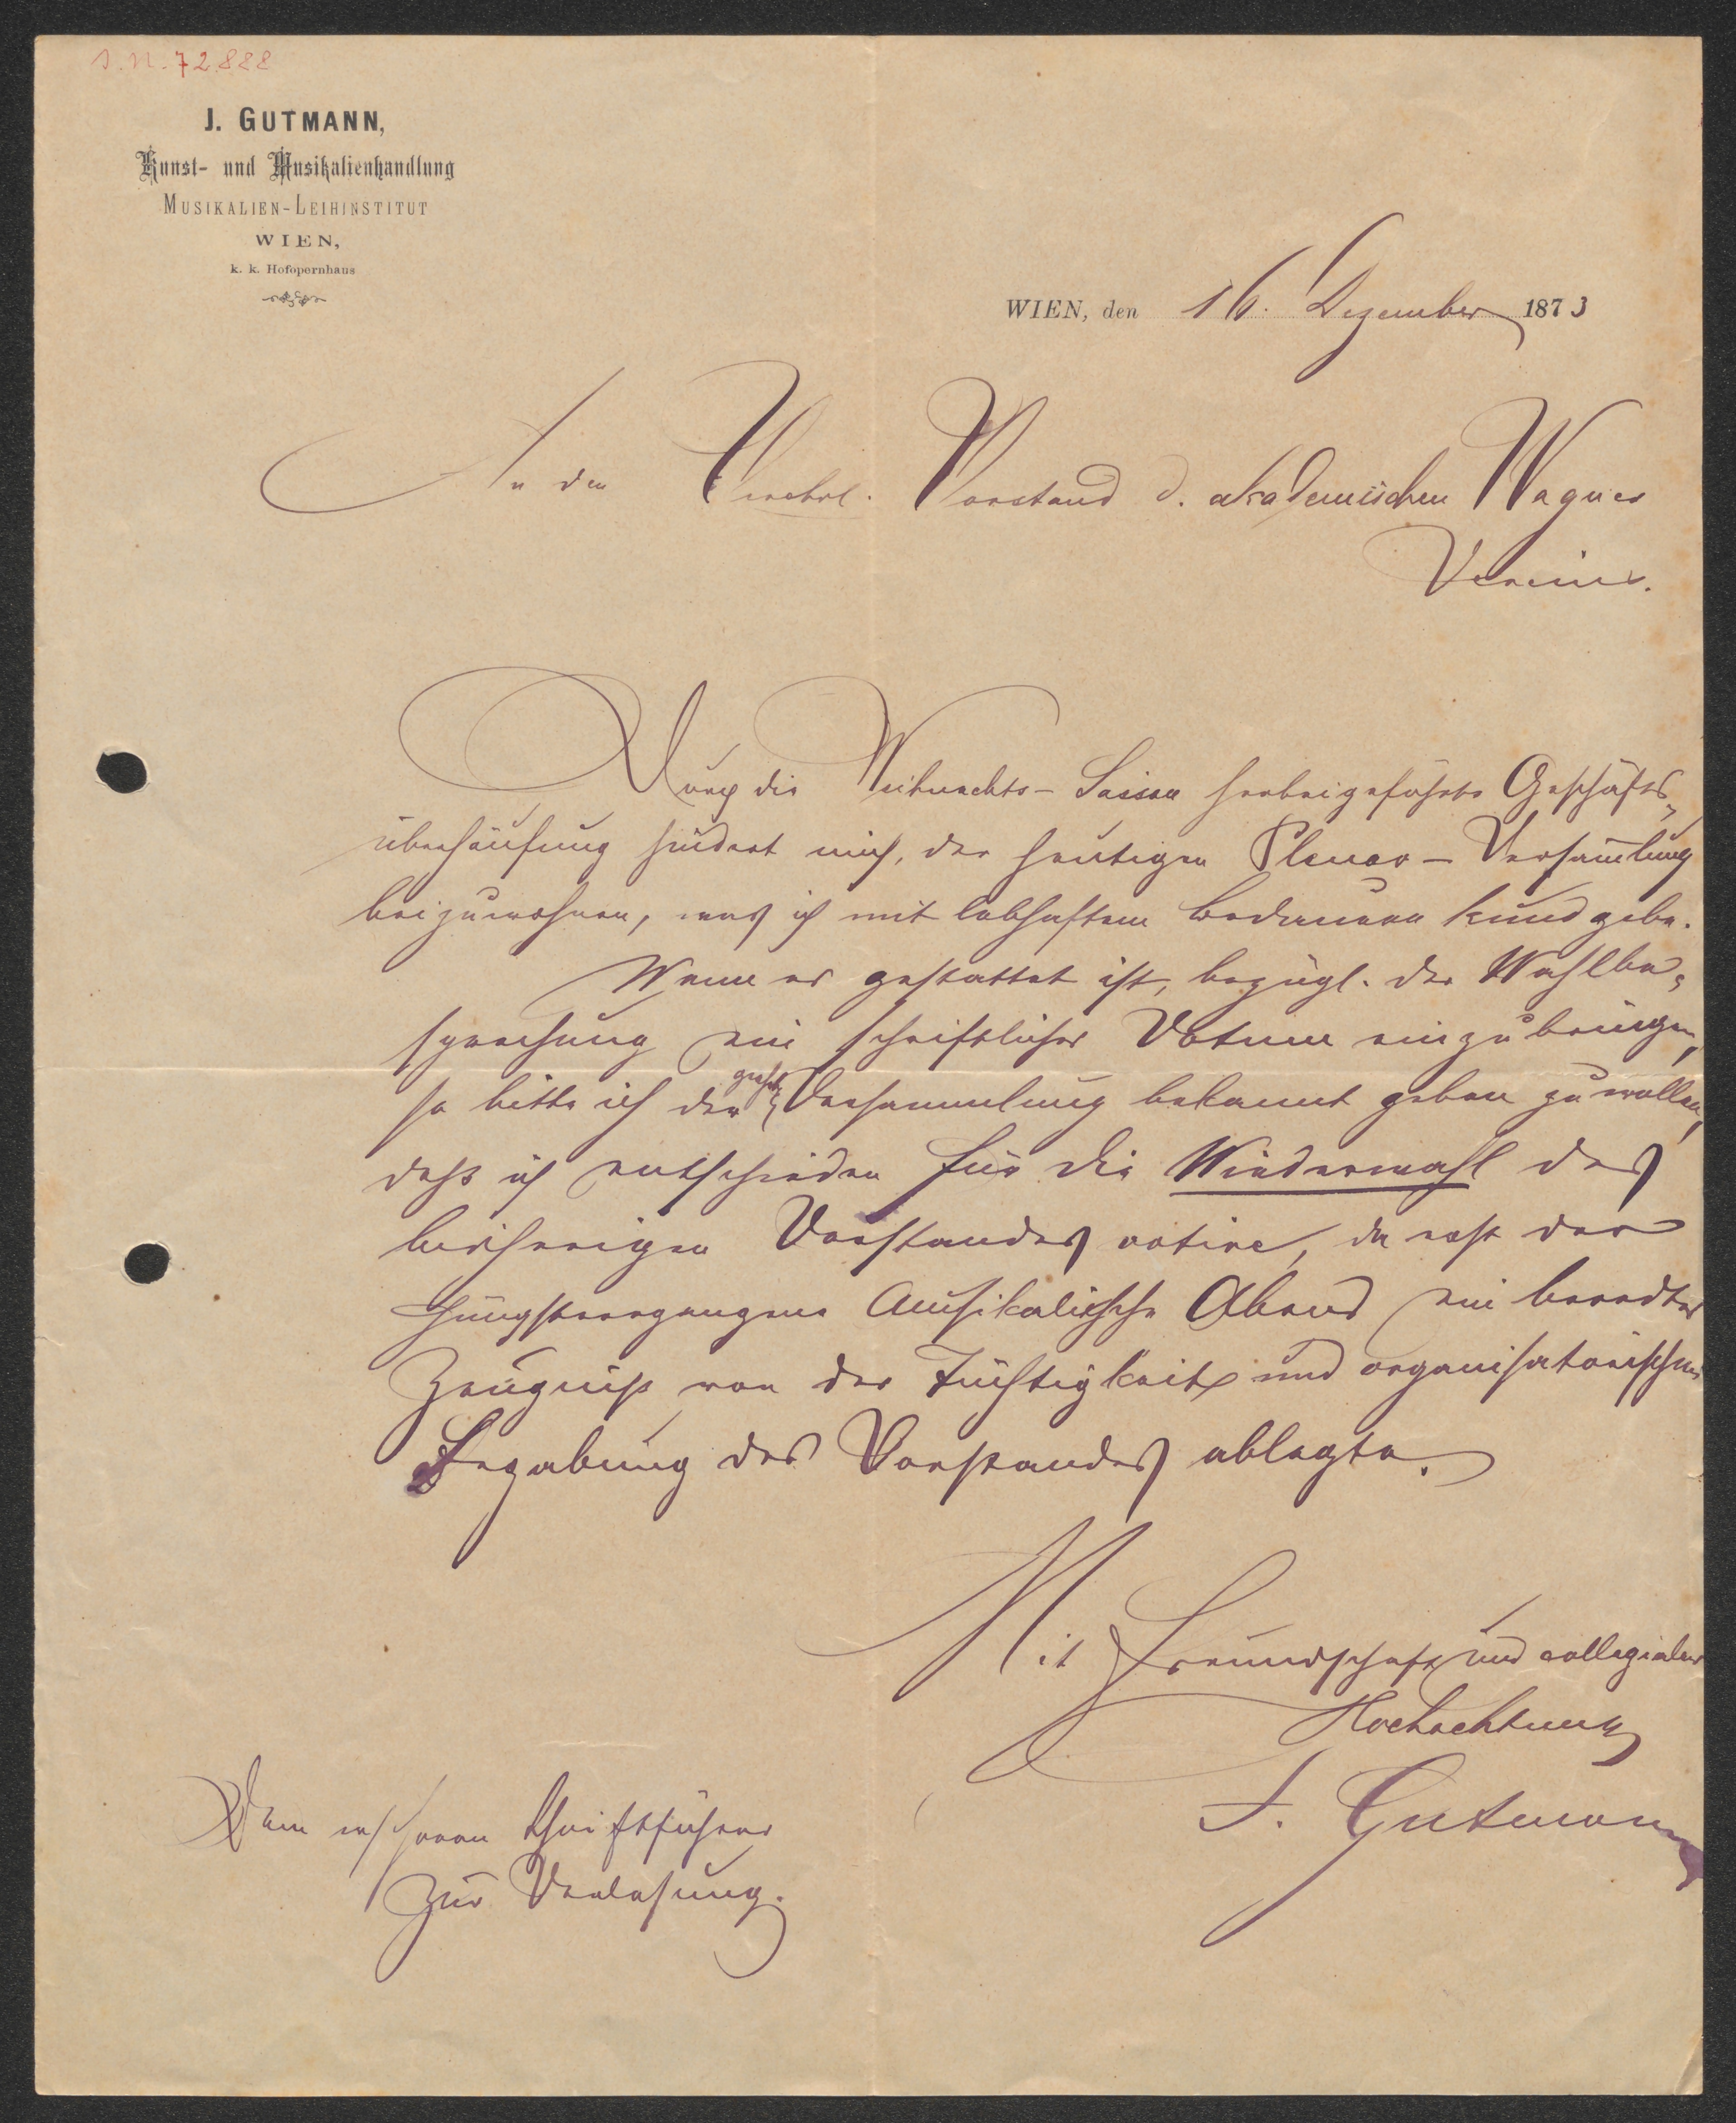 I.N. 72.888
J. GUTMANN,
Kunst- und Musikalienhandlung
MUSIKALIEN-LEIHINSTITUT
WIEN,
k. k. Hofopernhaus
WIEN, den 16. Dezember 1873
An den Verehrl. Vorstand d. akademischen Wagner
Vereins.
Durch die Weihnachts-Saison herbeigeführte Geschäfts-
überhäufung hindert mich, der heutigen Plenar-Versam̅lung
beizuwohnen, was ich mit lebhaftem Bedauern kundgebe.
Wenn es gestattet ist, bezügl. der Wahlbe-
sprechung ein schriftliches Votum einzubringen,
so bitte ich der geehrt. Versammlung bekannt geben zu wollen,
daß ich entschieden für die Wiederwahl des
bisherigen Vorstandes votire, da erst der
jüngstvergangene Musikalische Abend ein beredtes
Zeugniß von der Tüchtigkeit und organisatorischen
Begabung des Vorstandes ablegte.
Mit Freundschaft und collegialer
Hochachtung
J. Gutmann
Dem Schriftführer
zur Verlesung.